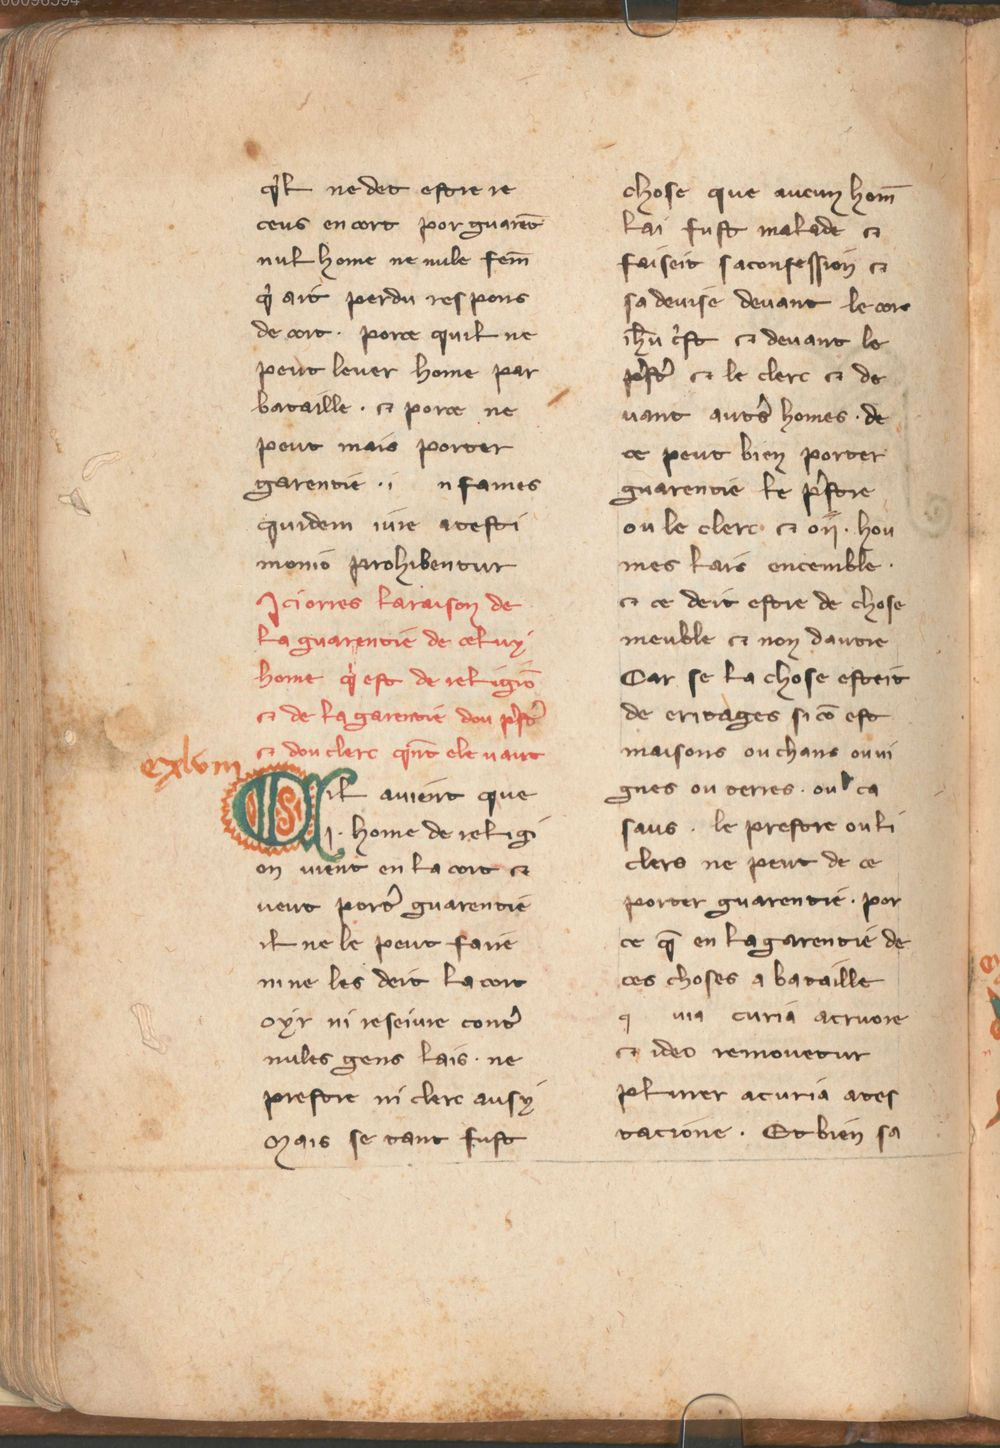 q'l ne det estre re
ceus en cort por guarēt
nul home ne nule fem̄
q' ait perdu respons
de cort . porce quil ne
peut lever home par
bataille . ⁊ porce ne
peut mais porter
garentie . i nfames
quidem iure atesti
monio prohibentur
Ici orres la raison de
la guarentie de celuy
home q' est de religiō
⁊ de la garentie dou p'st'
⁊ dou clerc qn̄t ele vaut
cxlvm
Sil avient que
.i. home de religi
on vient en la cort ⁊
veut port' guarentie
il ne le peut faire
ni ne les deit la cort
oyr ni reseivre cont'
nules gens lais . ne
prestre ni clerc ausy
Mais se tant fust
chose que aucun hom̄
lai fust malade ⁊
faiseit sa confession ⁊
sa devise devant le cors
ih̄u c'st ⁊ devant le
p'st' ⁊ le clerc ⁊ de
vant autr's homes . de
ce peut bien porter
guarentie le p'stre
ou le clerc ⁊ o ij . hou
mes lais encemble .
⁊ ce deit estre de chose
meuble ⁊ non dautre
Car se la chose esteit
de eritages si cō est
maisons ou chans ou vi
gnes ou terres . ou ca
saus . le prestre ou li
clers ne peut de ce
porter guarentie . por
ce q̄ en la garentie de
ces choses a bataille
q via curia acruore
⁊ ideo removetur
pluner a curia ates
tacione . Et bien sa